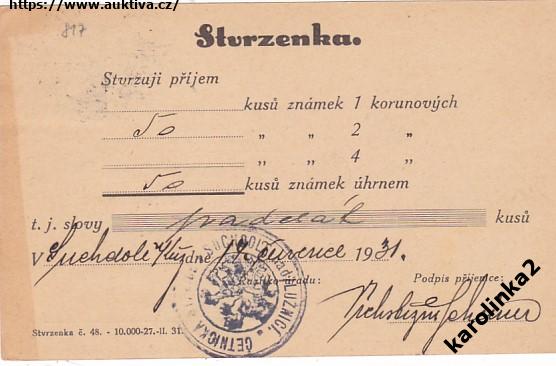 https://www.auktiva.cz/
817
Stvrzenka.
Stvrzuji příjem
kusů známek 1 korunových
50 „ „ 2 „
„ „ 4 „
50 kusů známek úhrnem
t. j. slovy padesát kusů
V Suchdole n/Luž dne července 1931.
Razítko úřadu: Podpis příjemce:
ČETNICKÁ SUCHDOL nad LUŽNICÍ.
Stvrzenka č. 48. - 10.000-27.-II. 31.
karolinka2